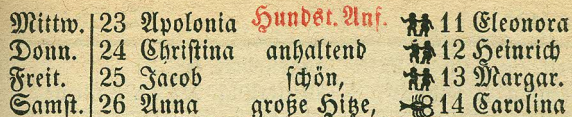 Mittw. 23 Apolonia Hundst. Anf. 11 Eleonora
Donn. 24 Christina anhaltend 12 Heinrich
Freit. 25 Jacob schön, 13 Margar.
Samst. 26 Anna große Hitze, 14 Carolina